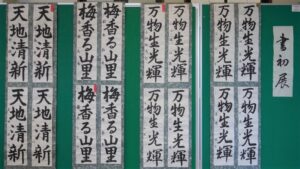 書初展
万物生光輝
万物生光輝
万物生光輝
万物生光輝
万物生光輝
万物生光輝
万物生光輝
万物生光輝
梅香る山里
梅香る山里
梅香る山里
梅香る山里
天地清新
天地清新
天地清新
天地清新